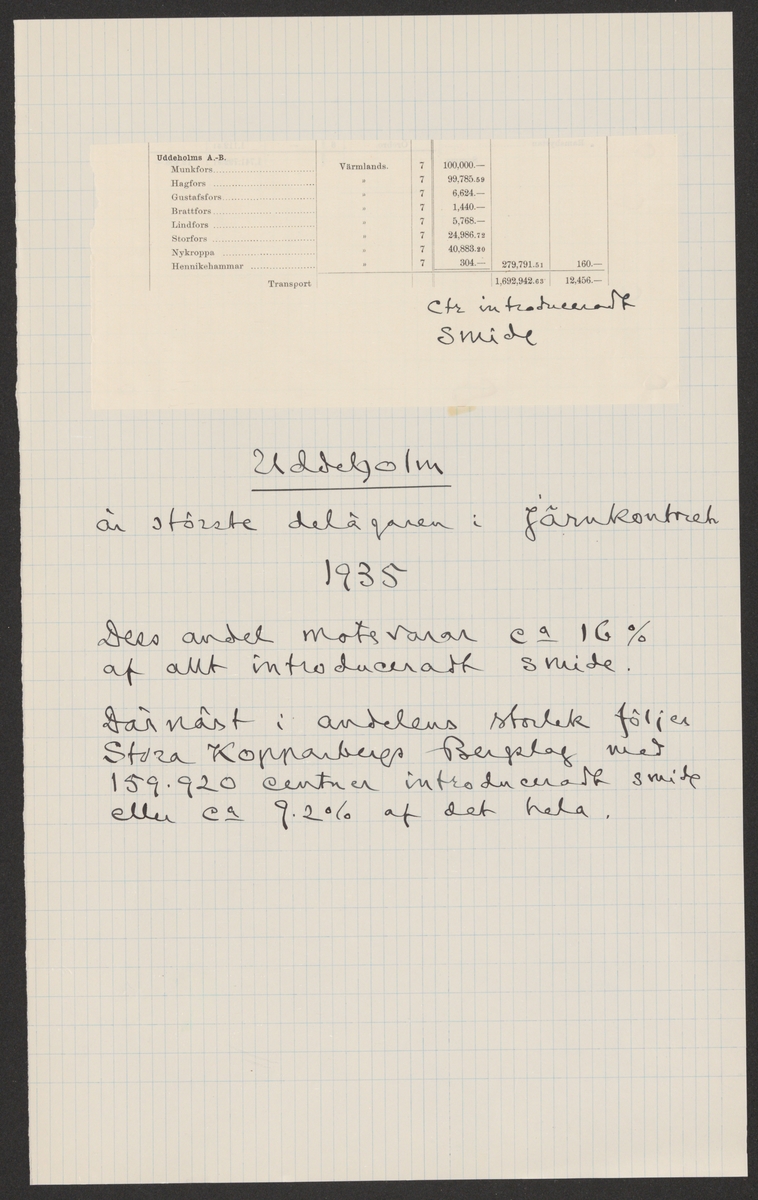 Uddeholms A.-B.
Munkfors Värmlands. 7 100,000.—
Hagfors » 7 99,785.59
Gustafsfors » 7 6,624.—
Brattfors » 7 1,440.—
Lindfors » 7 5,768.—
Storfors » 7 24,986.72
Nykroppa » 7 40,883.20
Hennikehammar » 7 304.— 279,791.51 160.—
Transport 1,692,942.63 12,456.—
Ctr introduceradt
smide
Uddeholm
är störste delägaren i Järnkontoret
1935
Dess andel motsvarar ca 16 %
af allt introduceradt smide.
Därnäst i andelens storlek följer
Stora Kopparbergs Bergslag med
159.920 centner introduceradt smide
eller ca 9.2% af det hela.